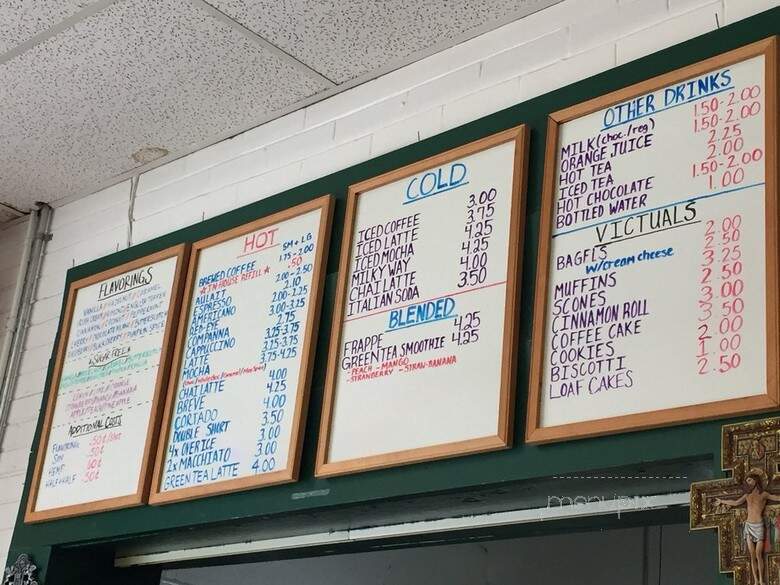 FLAVORINGS
VANILLA / HAZELNUT / CARAMEL
IRISH CREAM / ENGLISH TOFFEE
CINNAMON / COCONUT / PEPPERMINT
CHERRY / CHOCOLATE MINT / BUTTERSCOTCH
/ BLACKBERRY / PUMPKIN SPICE
SUGAR FREE
ADDITIONAL COSTS
FLAVORING .50¢/shot
SOY .50¢
HEMP 60¢
HALF & HALF .50¢
HOT
SM + LG
BREWED COFFEE 1.75-2.00
★ IN HOUSE REFILL ★ .50
AULAIT 2.00-2.50
ESPRESSO 2.10
AMERICANO 2.00-2.25
RED-EYE 3.00-3.25
COMPANNA 2.75
CAPPUCCINO 3.25-3.75
LATTE 3.25-3.75
MOCHA 3.75-4.25
CHAI LATTE 4.00
BREVE 4.25
CORTADO 4.00
DOUBLE SHORT 3.50
4x OVER ICE 3.00
2x MACCHIATO 3.00
GREEN TEA LATTE 4.00
COLD
ICED COFFEE 3.00
ICED LATTE 3.75
ICED MOCHA 4.25
MILKY WAY 4.25
CHAI LATTE 4.00
ITALIAN SODA 3.50
BLENDED
FRAPPE 4.25
GREEN TEA SMOOTHIE 4.25
- PEACH - MANGO
- STRAWBERRY - STRAW-BANANA
OTHER DRINKS
MILK (choc./reg) 1.50-2.00
ORANGE JUICE 1.50-2.00
HOT TEA 2.25
ICED TEA 2.00
HOT CHOCOLATE 1.50-2.00
BOTTLED WATER 1.00
VICTUALS
BAGELS 2.00
w/cream cheese 2.50
MUFFINS 3.25
SCONES 2.50
CINNAMON ROLL 3.00
COFFEE CAKE 3.50
COOKIES 2.00
BISCOTTI 1.00
LOAF CAKES 2.50
menupix